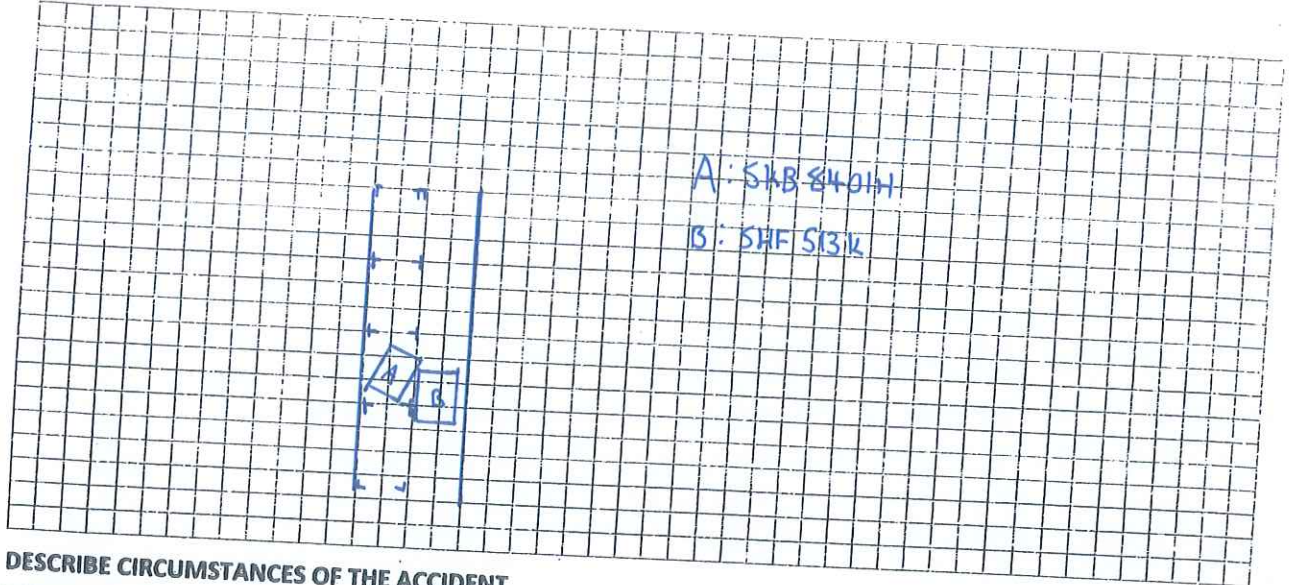 A : SKB 8401H
B : SHF 513K
A
B
DESCRIBE CIRCUMSTANCES OF THE ACCIDENT